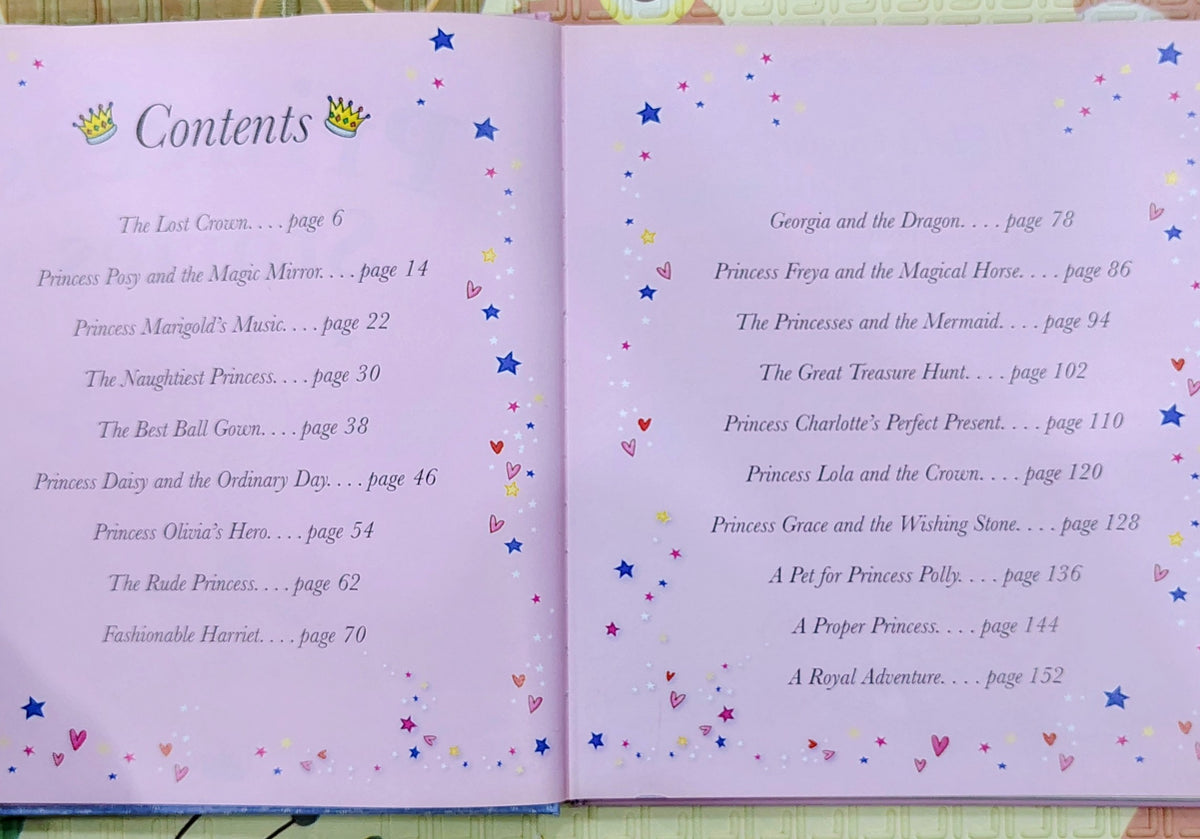 Contents
The Lost Crown. . . . page 6
Princess Posy and the Magic Mirror. . . . page 14
Princess Marigold's Music. . . . page 22
The Naughtiest Princess. . . . page 30
The Best Ball Gown. . . . page 38
Princess Daisy and the Ordinary Day. . . . page 46
Princess Olivia's Hero. . . . page 54
The Rude Princess. . . . page 62
Fashionable Harriet. . . . page 70
Georgia and the Dragon. . . . page 78
Princess Freya and the Magical Horse. . . . page 86
The Princesses and the Mermaid. . . . page 94
The Great Treasure Hunt. . . . page 102
Princess Charlotte's Perfect Present. . . . page 110
Princess Lola and the Crown. . . . page 120
Princess Grace and the Wishing Stone. . . . page 128
A Pet for Princess Polly. . . . page 136
A Proper Princess. . . . page 144
A Royal Adventure. . . . page 152